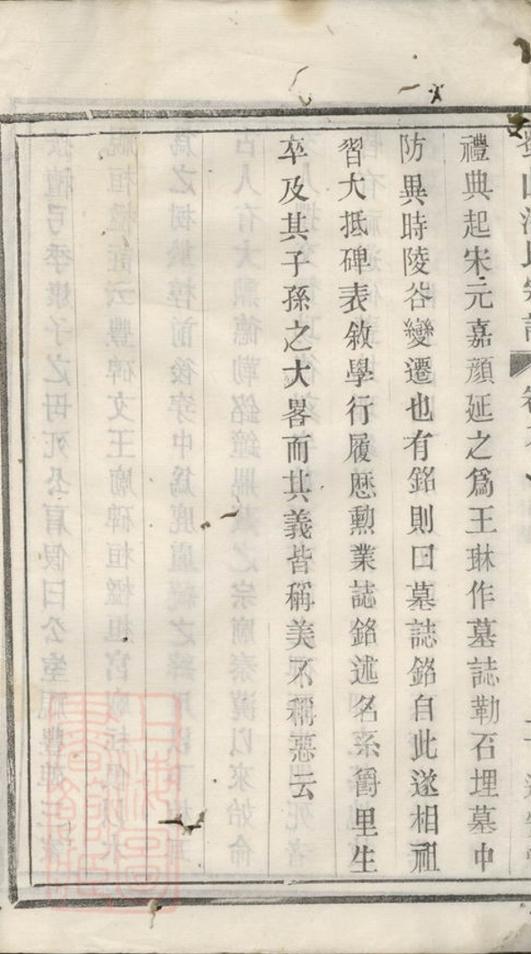 禮典起宋元嘉顏延之爲王琳作墓誌勒石埋墓中
防異時陵谷變遷也有銘則曰墓誌銘自此遂相祖
習大抵碑表敘學行履歷勲業誌銘述名系爵里生
卒及其子孫之大畧而其義皆稱美不稱惡云